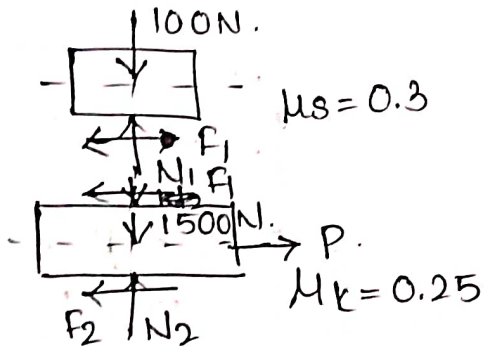 100N.
μs = 0.3
F1
N1
F1
1500N.
P.
μk = 0.25
F2 N2